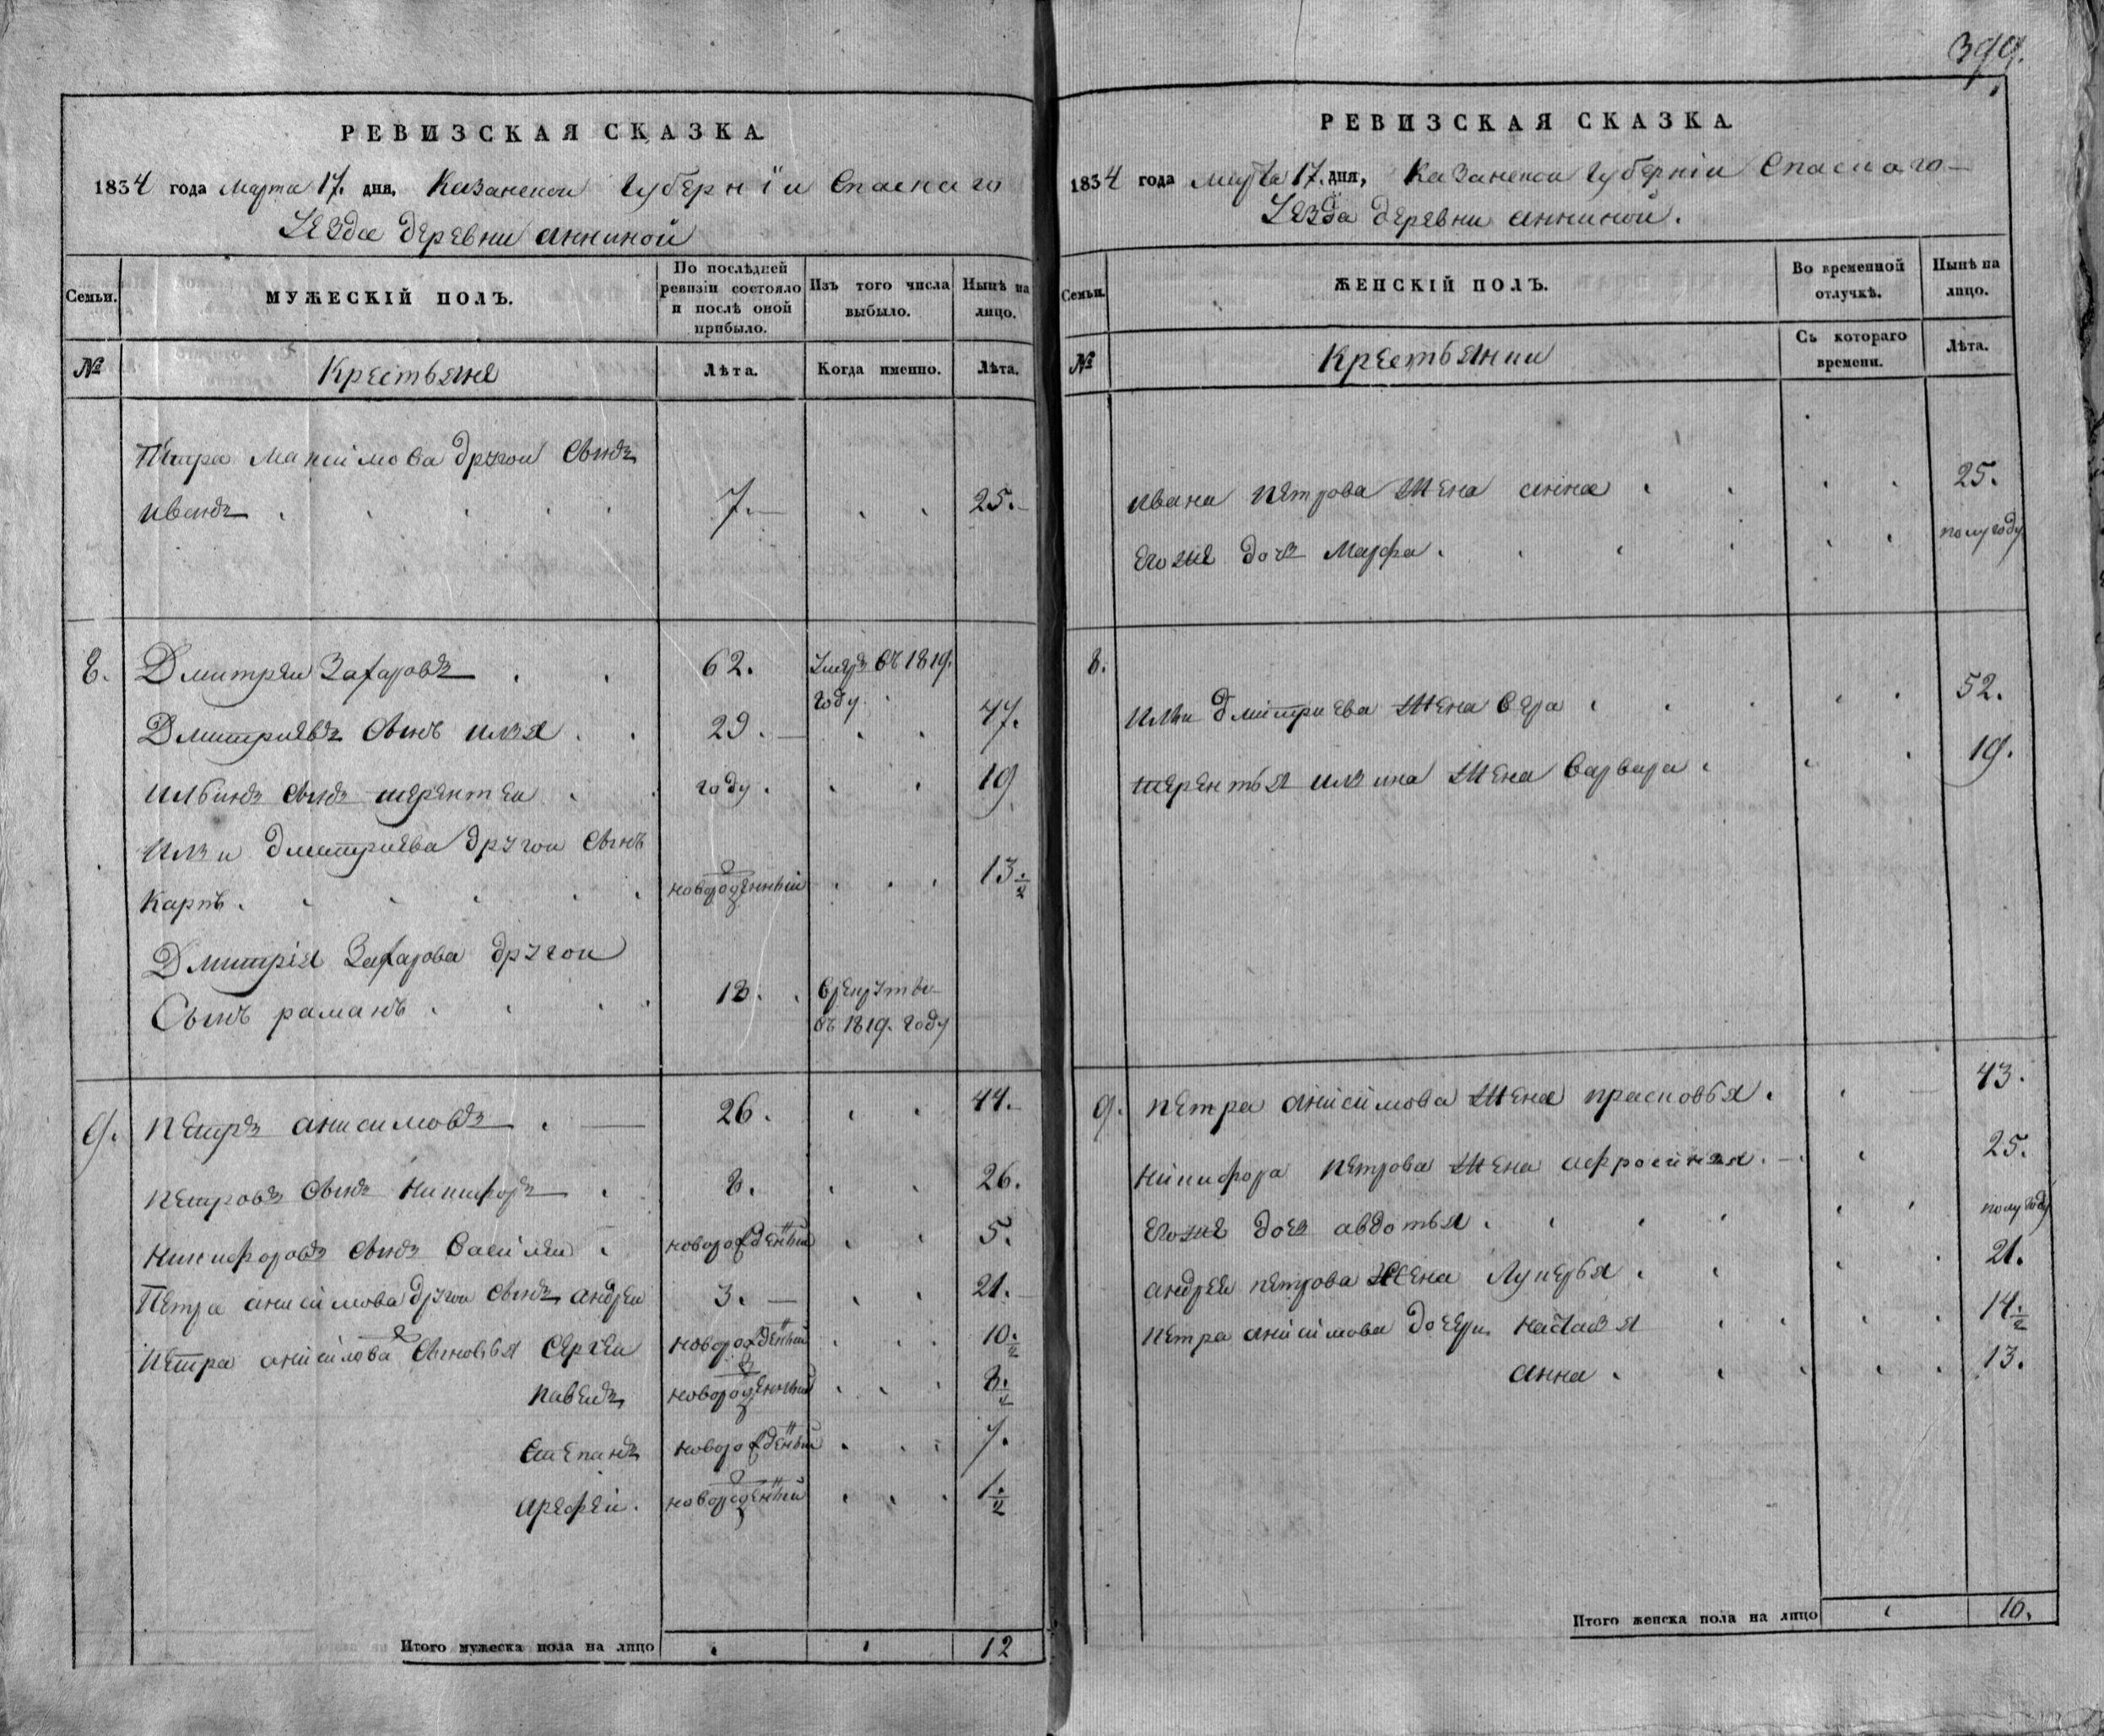 399.
РЕВИЗСКАЯ СКАЗКА.
1834 года Марта 17. дня, Казанской Губернïи Спаскаго
Уезда деревни анниной
Семьи.
МУЖЕСКІЙ ПОЛЪ.
По послѣдней ревизіи состояло и послѣ оной прибыло.
Изъ того числа выбыло.
Нынѣ на лицо.
№
Крестьяне
Лѣта.
Когда именно.
Лѣта.
Петра Максимова другои сынъ
иванъ 7. 25.
8. Дмитреи Захаровъ 62. Умеръ въ 1819. году
Дмитриевъ сынъ илья 29. 47.
ильинъ сынъ терентеи году. 19
ильи дмитриева другои сынъ
карпъ новорожденный 13 1/2
Дмитрія Захарова другои
сынъ романъ 18. в рекрутъ въ 1819. году
9. петръ анисимовъ 26. 44.
петровъ сынъ никифоръ 8. 26.
никифоровъ сынъ василеи новорожденный 5.
Петра анисимова другои сынъ андреи 3. 21.
петра анисимова сыновья сергеи новорожденный 10 1/2
павелъ новорожденный 8 1/2
степанъ новорожденный 7.
арефеи новорожденный 1 1/2
Итого мужеска пола на лицо 12
РЕВИЗСКАЯ СКАЗКА.
1834 года марта 17. дня, Казанской Губерніи Спаскаго
Уезда деревни анниной.
Семьи.
ЖЕНСКІЙ ПОЛЪ.
Во временной отлучкѣ.
Нынѣ на лицо.
№
Крестьянки
Съ котораго времени.
Лѣта.
ивана петрова жена анна 25.
егоже дочь Марфа полугоду
8. ильи дмитриева жена вера 52.
терентья ильина жена варвара 19.
9. петра анисимова жена прасковья 43.
никифора петрова жена афросинья 25.
егоже дочь авдотья полугоду
андрея петрова жена Лукерья 21.
петра анисимова дочери настасья 14 1/2
анна 13.
Итого женска пола на лицо 10.